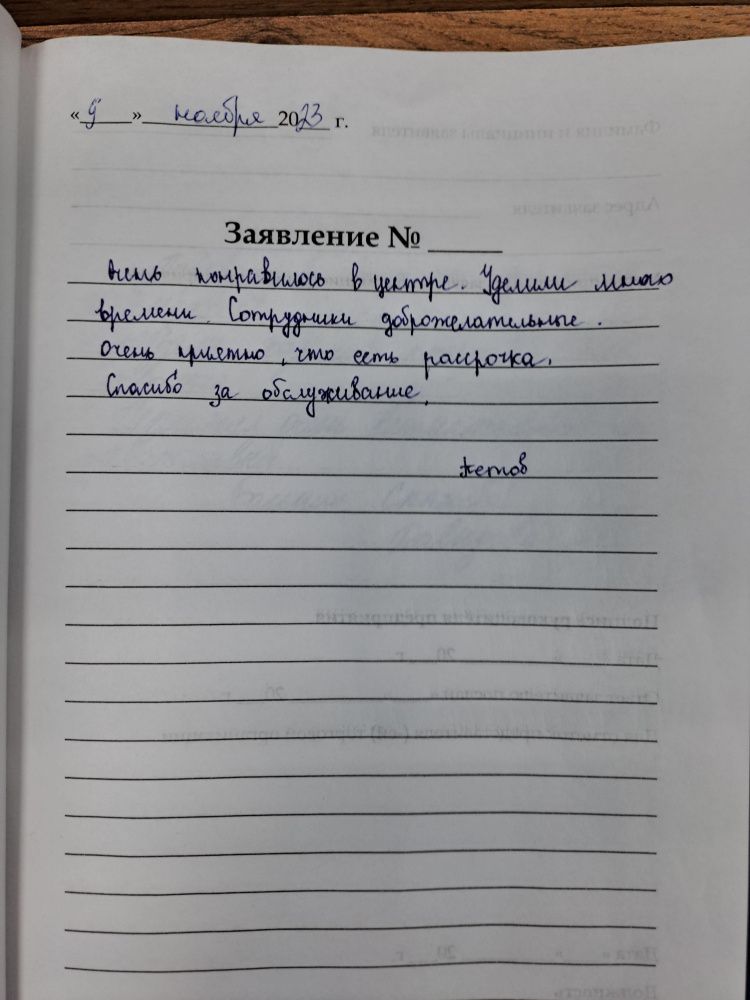 «9» ноября 2023 г.
Заявление № ____
Очень понравилось в центре. Уделили много
времени. Сотрудники доброжелательные.
Очень приятно, что есть рассрочка.
Спасибо за обслуживание.